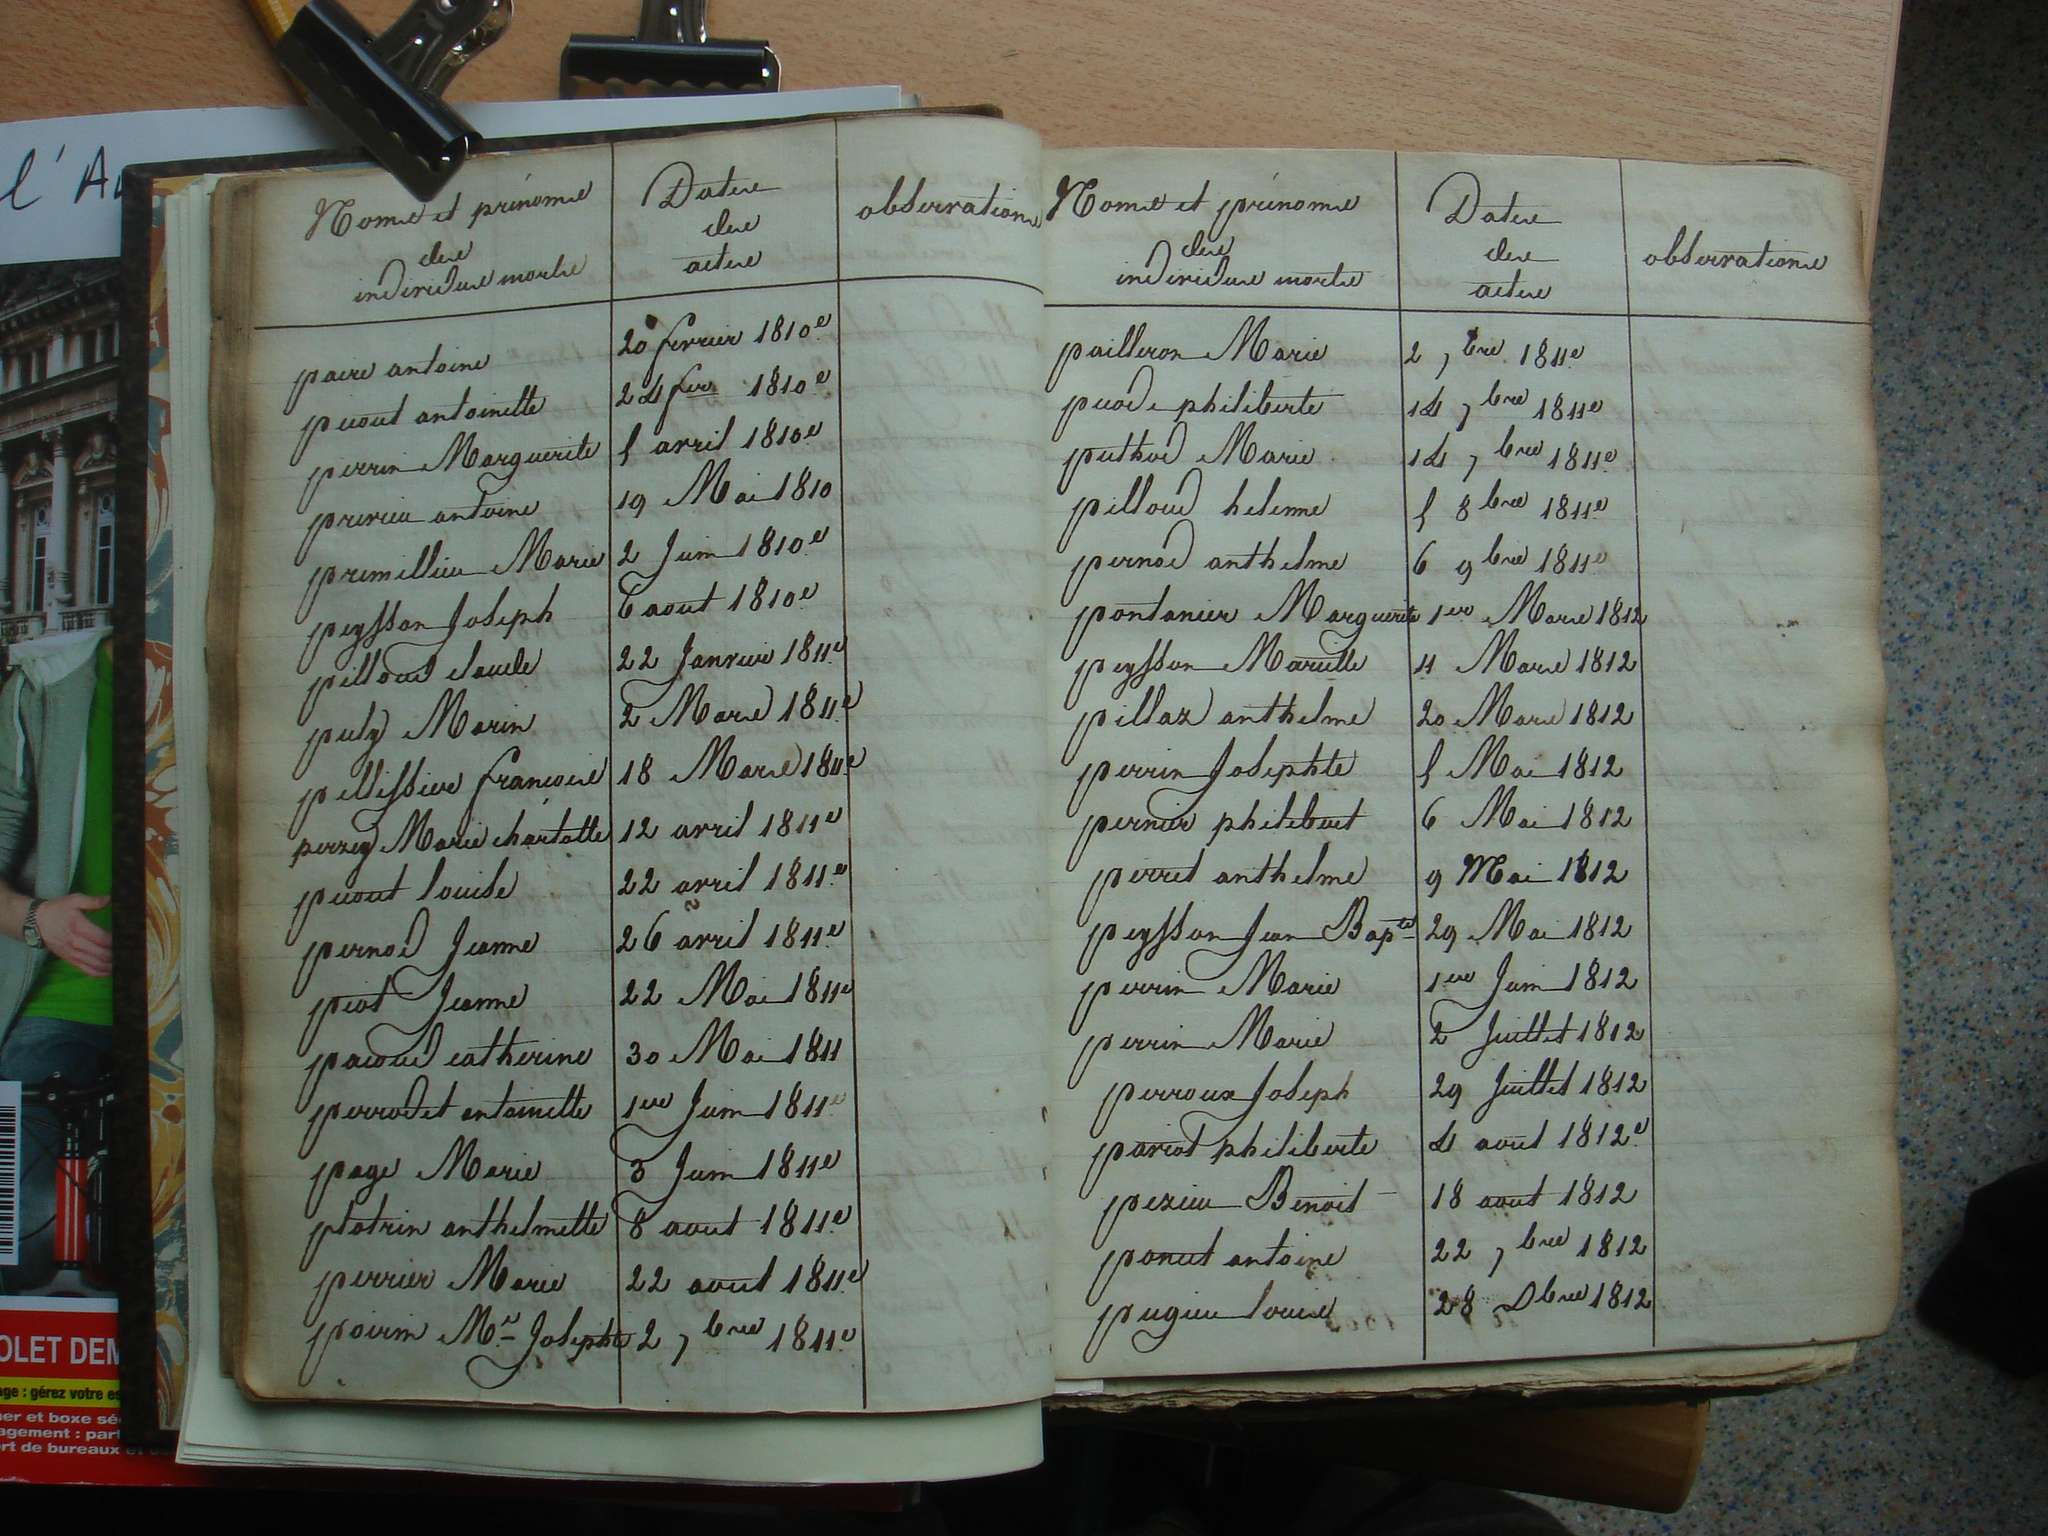 l'Au
Noms et prénoms
des
individus morts
Dates
des
actes
observations
paire antoine 20 fevrier 1810.
picout antoinette 24 fer 1810.
perrin Marguerite 5 avril 1810.
privieu antoine 19 Mai 1810
premillieu Marie 2 Juin 1810.
peysson Joseph 6 aout 1810.
pilloud claude 22 Janvier 1811.
puly Marin 2 Mars 1811.
pellissier françois 18 Mars 1811.
perzey Marie charlotte 12 avril 1811.
picout louise 22 avril 1811.
pernod Jeanne 26 avril 1811.
piot Jeanne 22 Mai 1811.
pacoud catherine 30 Mai 1811
perrodet antoinette 1er Juin 1811.
page Marie 3 Juin 1811.
platrin anthelmette 8 aout 1811.
perrier Marie 22 aout 1811.
Mie Josephte 2 7bre 1811.
Noms et prénoms
des
individus morts
Dates
des
actes
observations
pailleron Marie 2 7bre 1811.
philiberte 14 7bre 1811.
puthod Marie 14 7bre 1811.
pilloud helenne 5 8bre 1811.
pernod anthelme 6 9bre 1811.
pontanier Marguerite 1er Mars 1812
peysson Mariette 11 Mars 1812
pillaz anthelme 20 Mars 1812
perrin Josephte 5 Mai 1812
pernier philibert 6 Mai 1812
perret anthelme 9 Mai 1812
peysson Jean Bapte 29 Mai 1812
perrin Marie 1er Juin 1812
perrin Marie 2 Juillet 1812
perroux Joseph 29 Juillet 1812
pariot philiberte 4 aout 1812.
pezieu Benoit 18 aout 1812
poncet antoine 22 7bre 1812
pugieu louise 28 Dbre 1812
OLET DEM
age : gérez votre es
ner et boxe sé
agement : part
ort de bureaux et